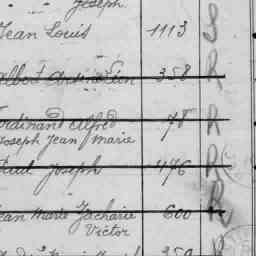 Joseph
Jean Louis 1113 S
Albert 358 R
Ferdinand Alfred 78 R
Joseph Jean Marie
Paul Joseph 476 R
R
Jean Marie Zacharie 600
Victor
359